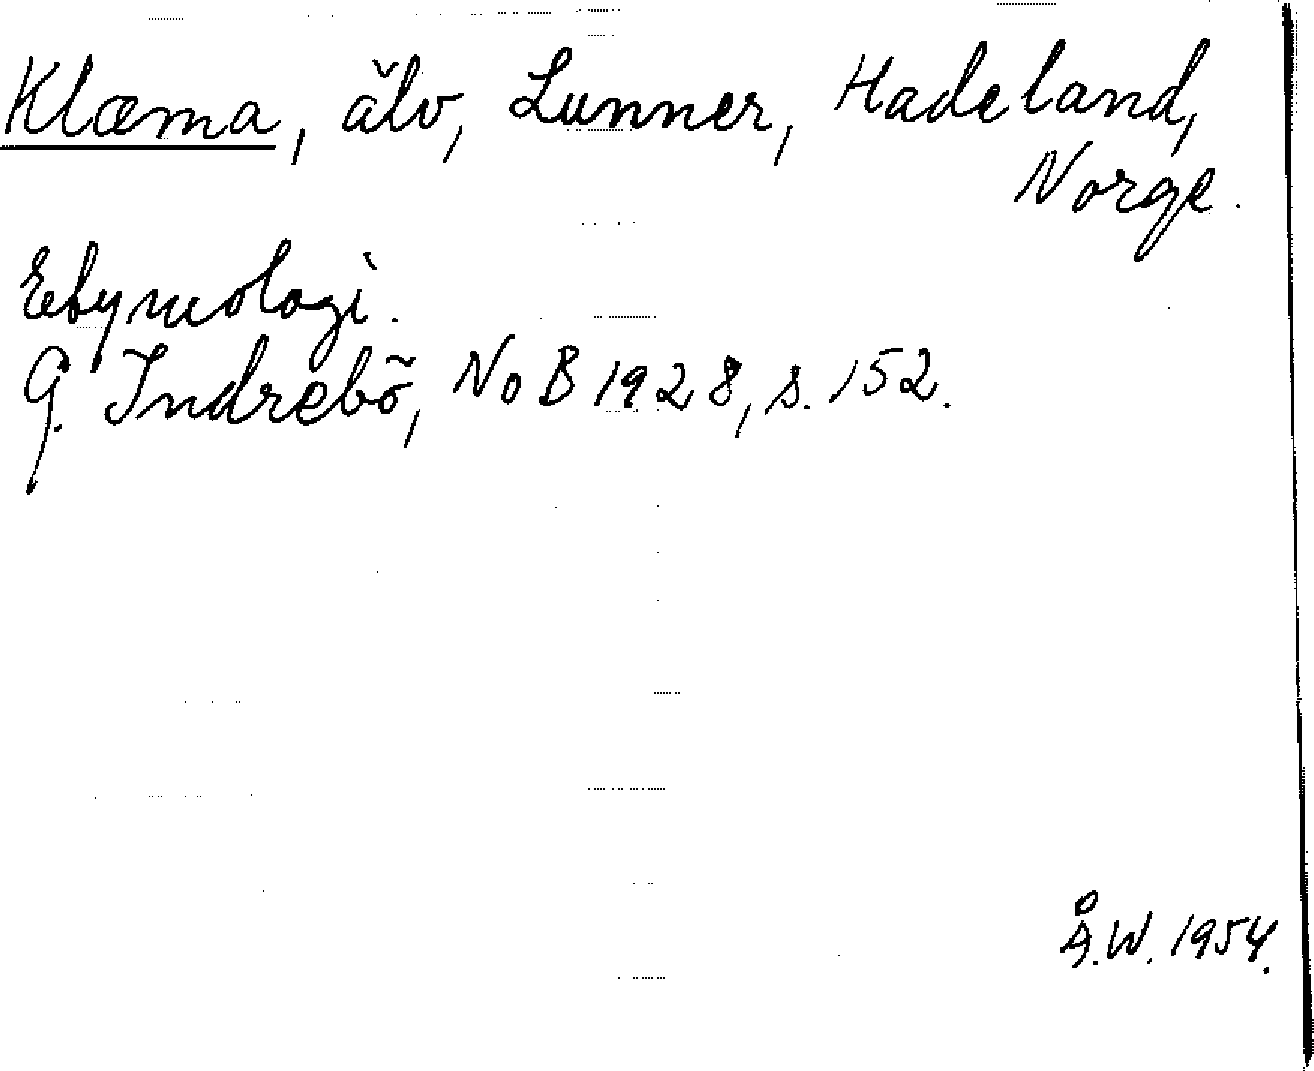 Klæma, älv, Lunner, Hadeland,
Norge.
Etymologi.
G. Indrebö, NoB 1928, s. 152.
Å.W. 1954.